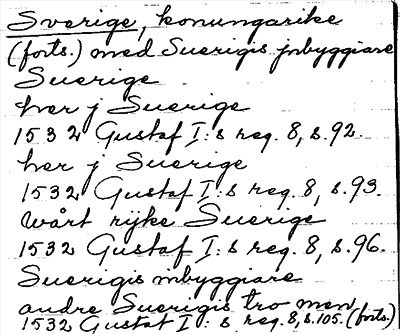 Sverige, konungarike
(forts.) med Suerigis jnbyggiare
Suerige
her j Suerige
1532 Gustaf I:s reg. 8, s. 92.
her j Suerige
1532 Gustaf I:s reg. 8, s. 93.
wårt rijke Suerige
1532 Gustaf I:s reg. 8, s. 96.
Suerigis inbyggiare
andre Suerigis tro men
1532 Gustaf I:s reg. 8, s. 105. (forts.)